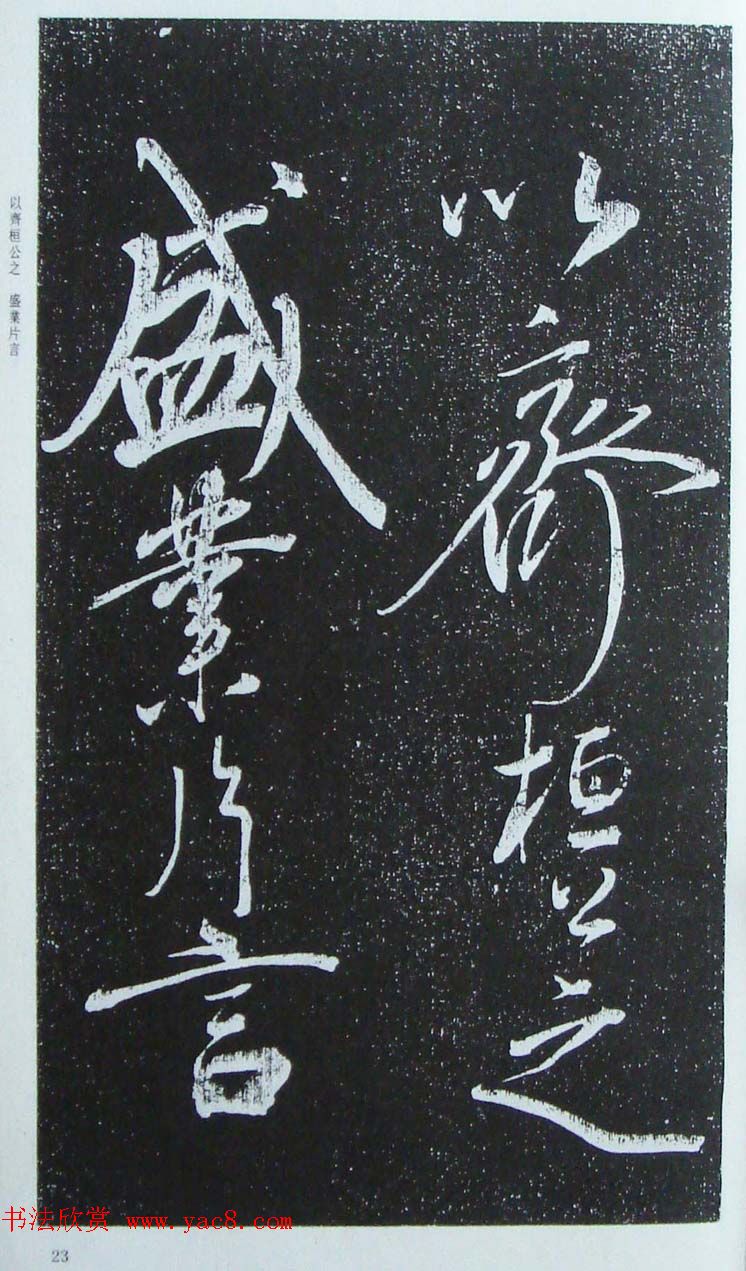 以齊桓公之
盛業片言
以齊桓公之　盛業片言
书法欣赏 www.yac8.com
23